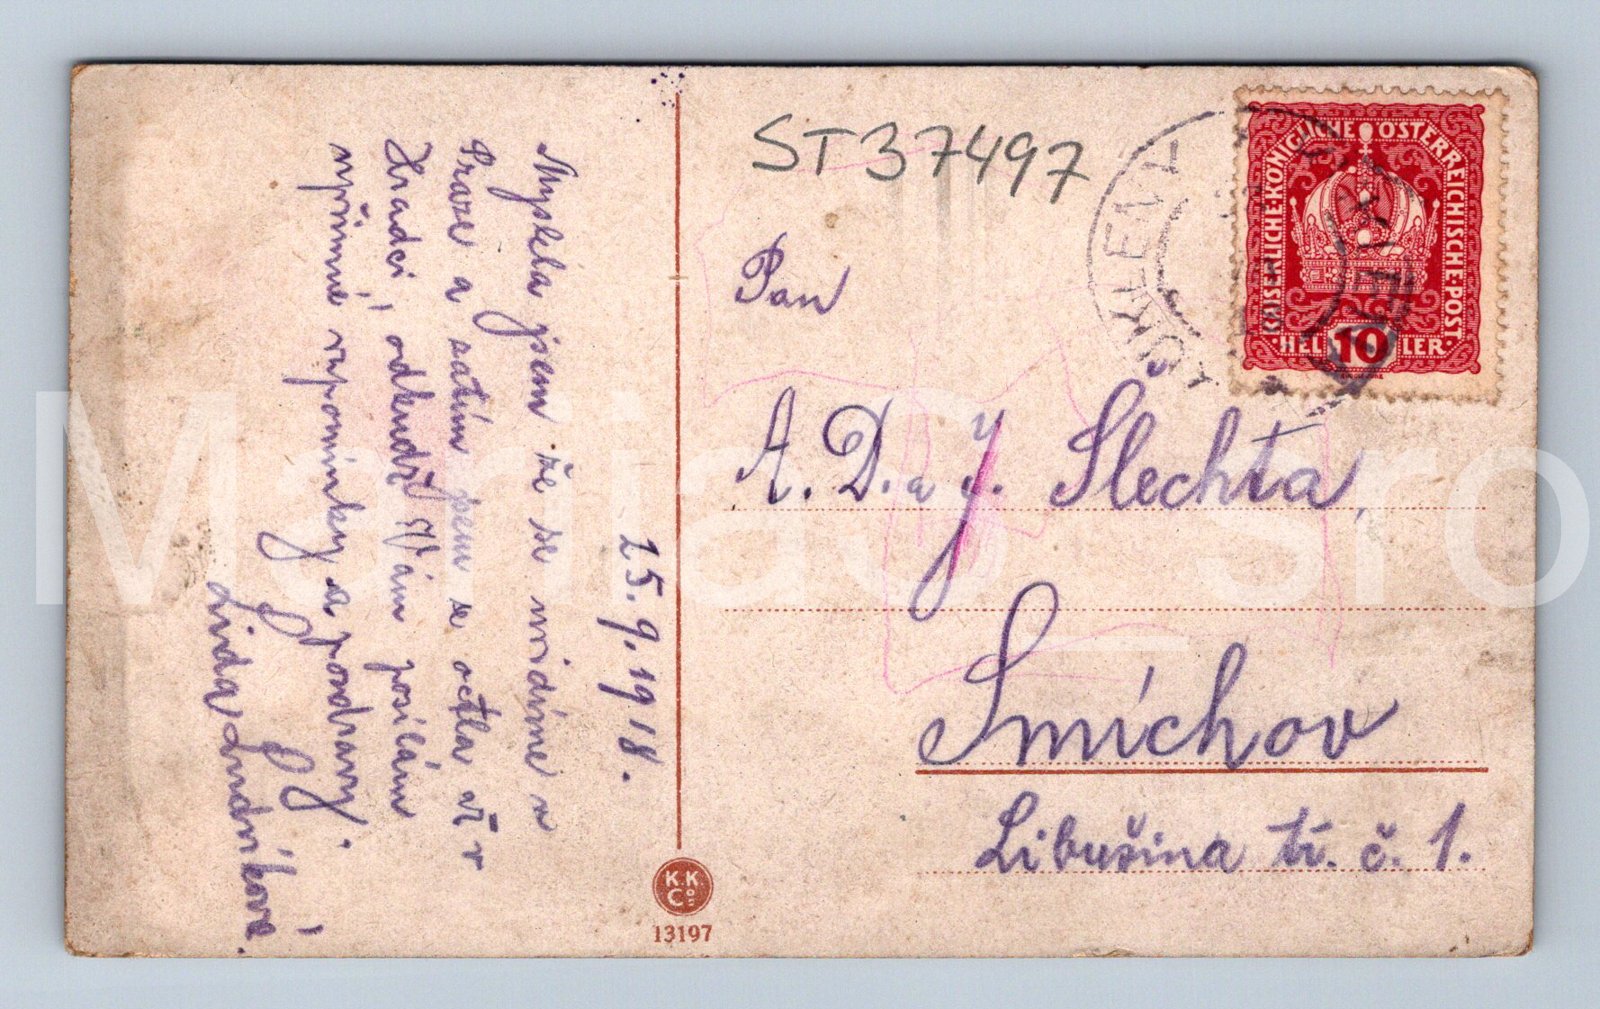 25. 9. 1918.
Myslela jsem že se uvidíme v
Praze a zatím jsem se octla až v
Hradci, odkudž Vám posílám
upřímné vzpomínky a pozdravy.
Linda Ludvíková.
ST37497
Pan
A. D. a J. Šlechta,
Smíchov
Libušina tř. č. 1.
KAISERLICHE·KÖNIGLICHE ÖSTERREICHISCHE·POST·
HELLER
10
K.K.
Co
13197
Maniac_sro